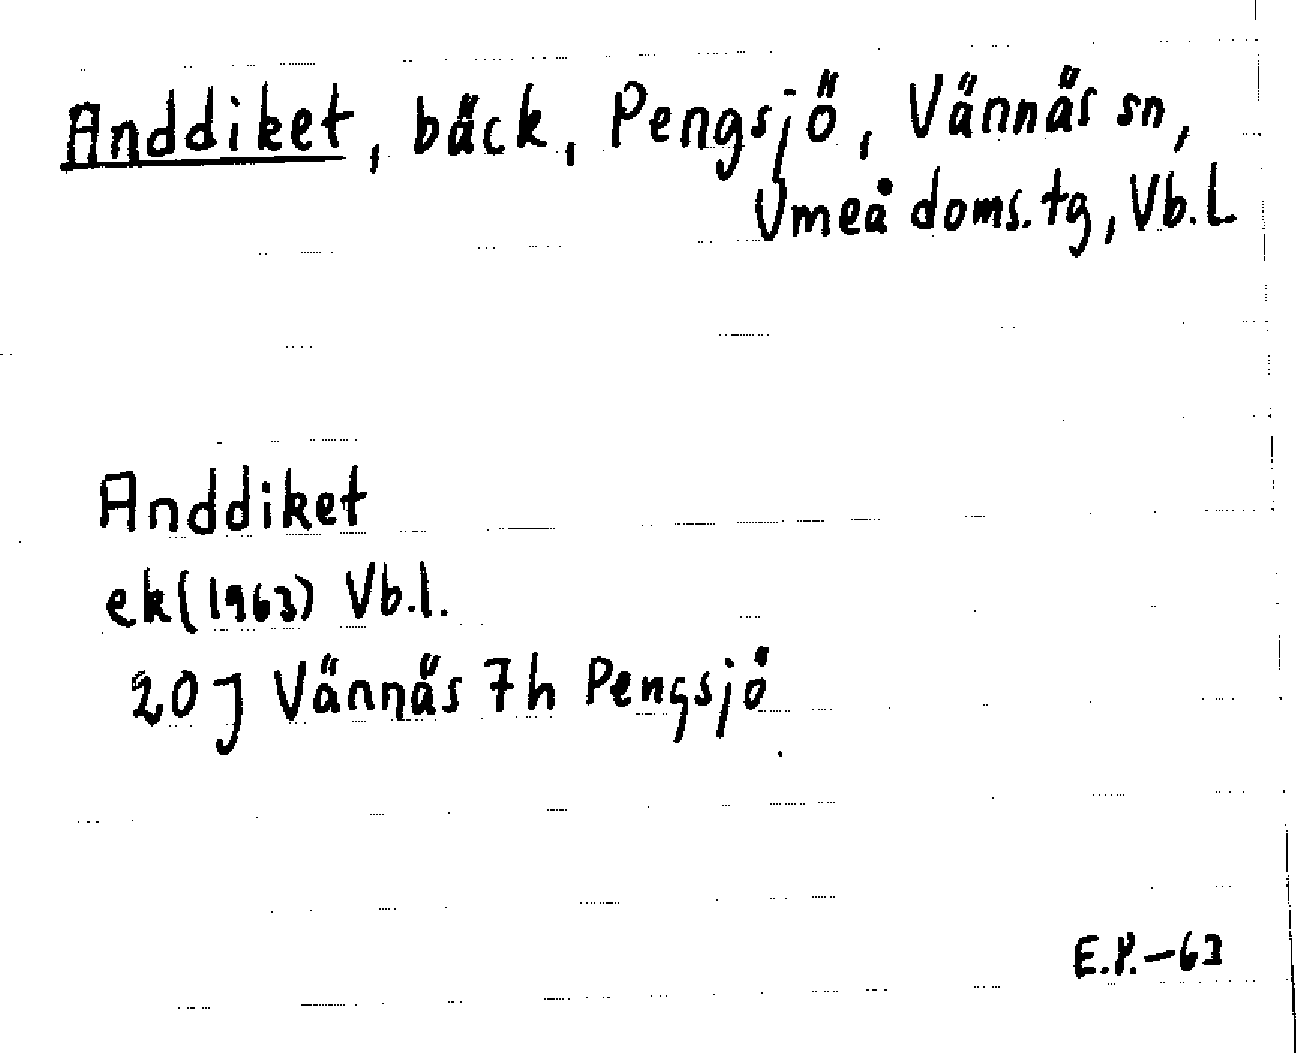 Anddiket, bäck, Pengsjö, Vännäs sn,
Umeå doms.tg, Vb.l.
Anddiket
ek(1963) Vb.l.
20J Vännäs 7h Pengsjö
E.P.-63